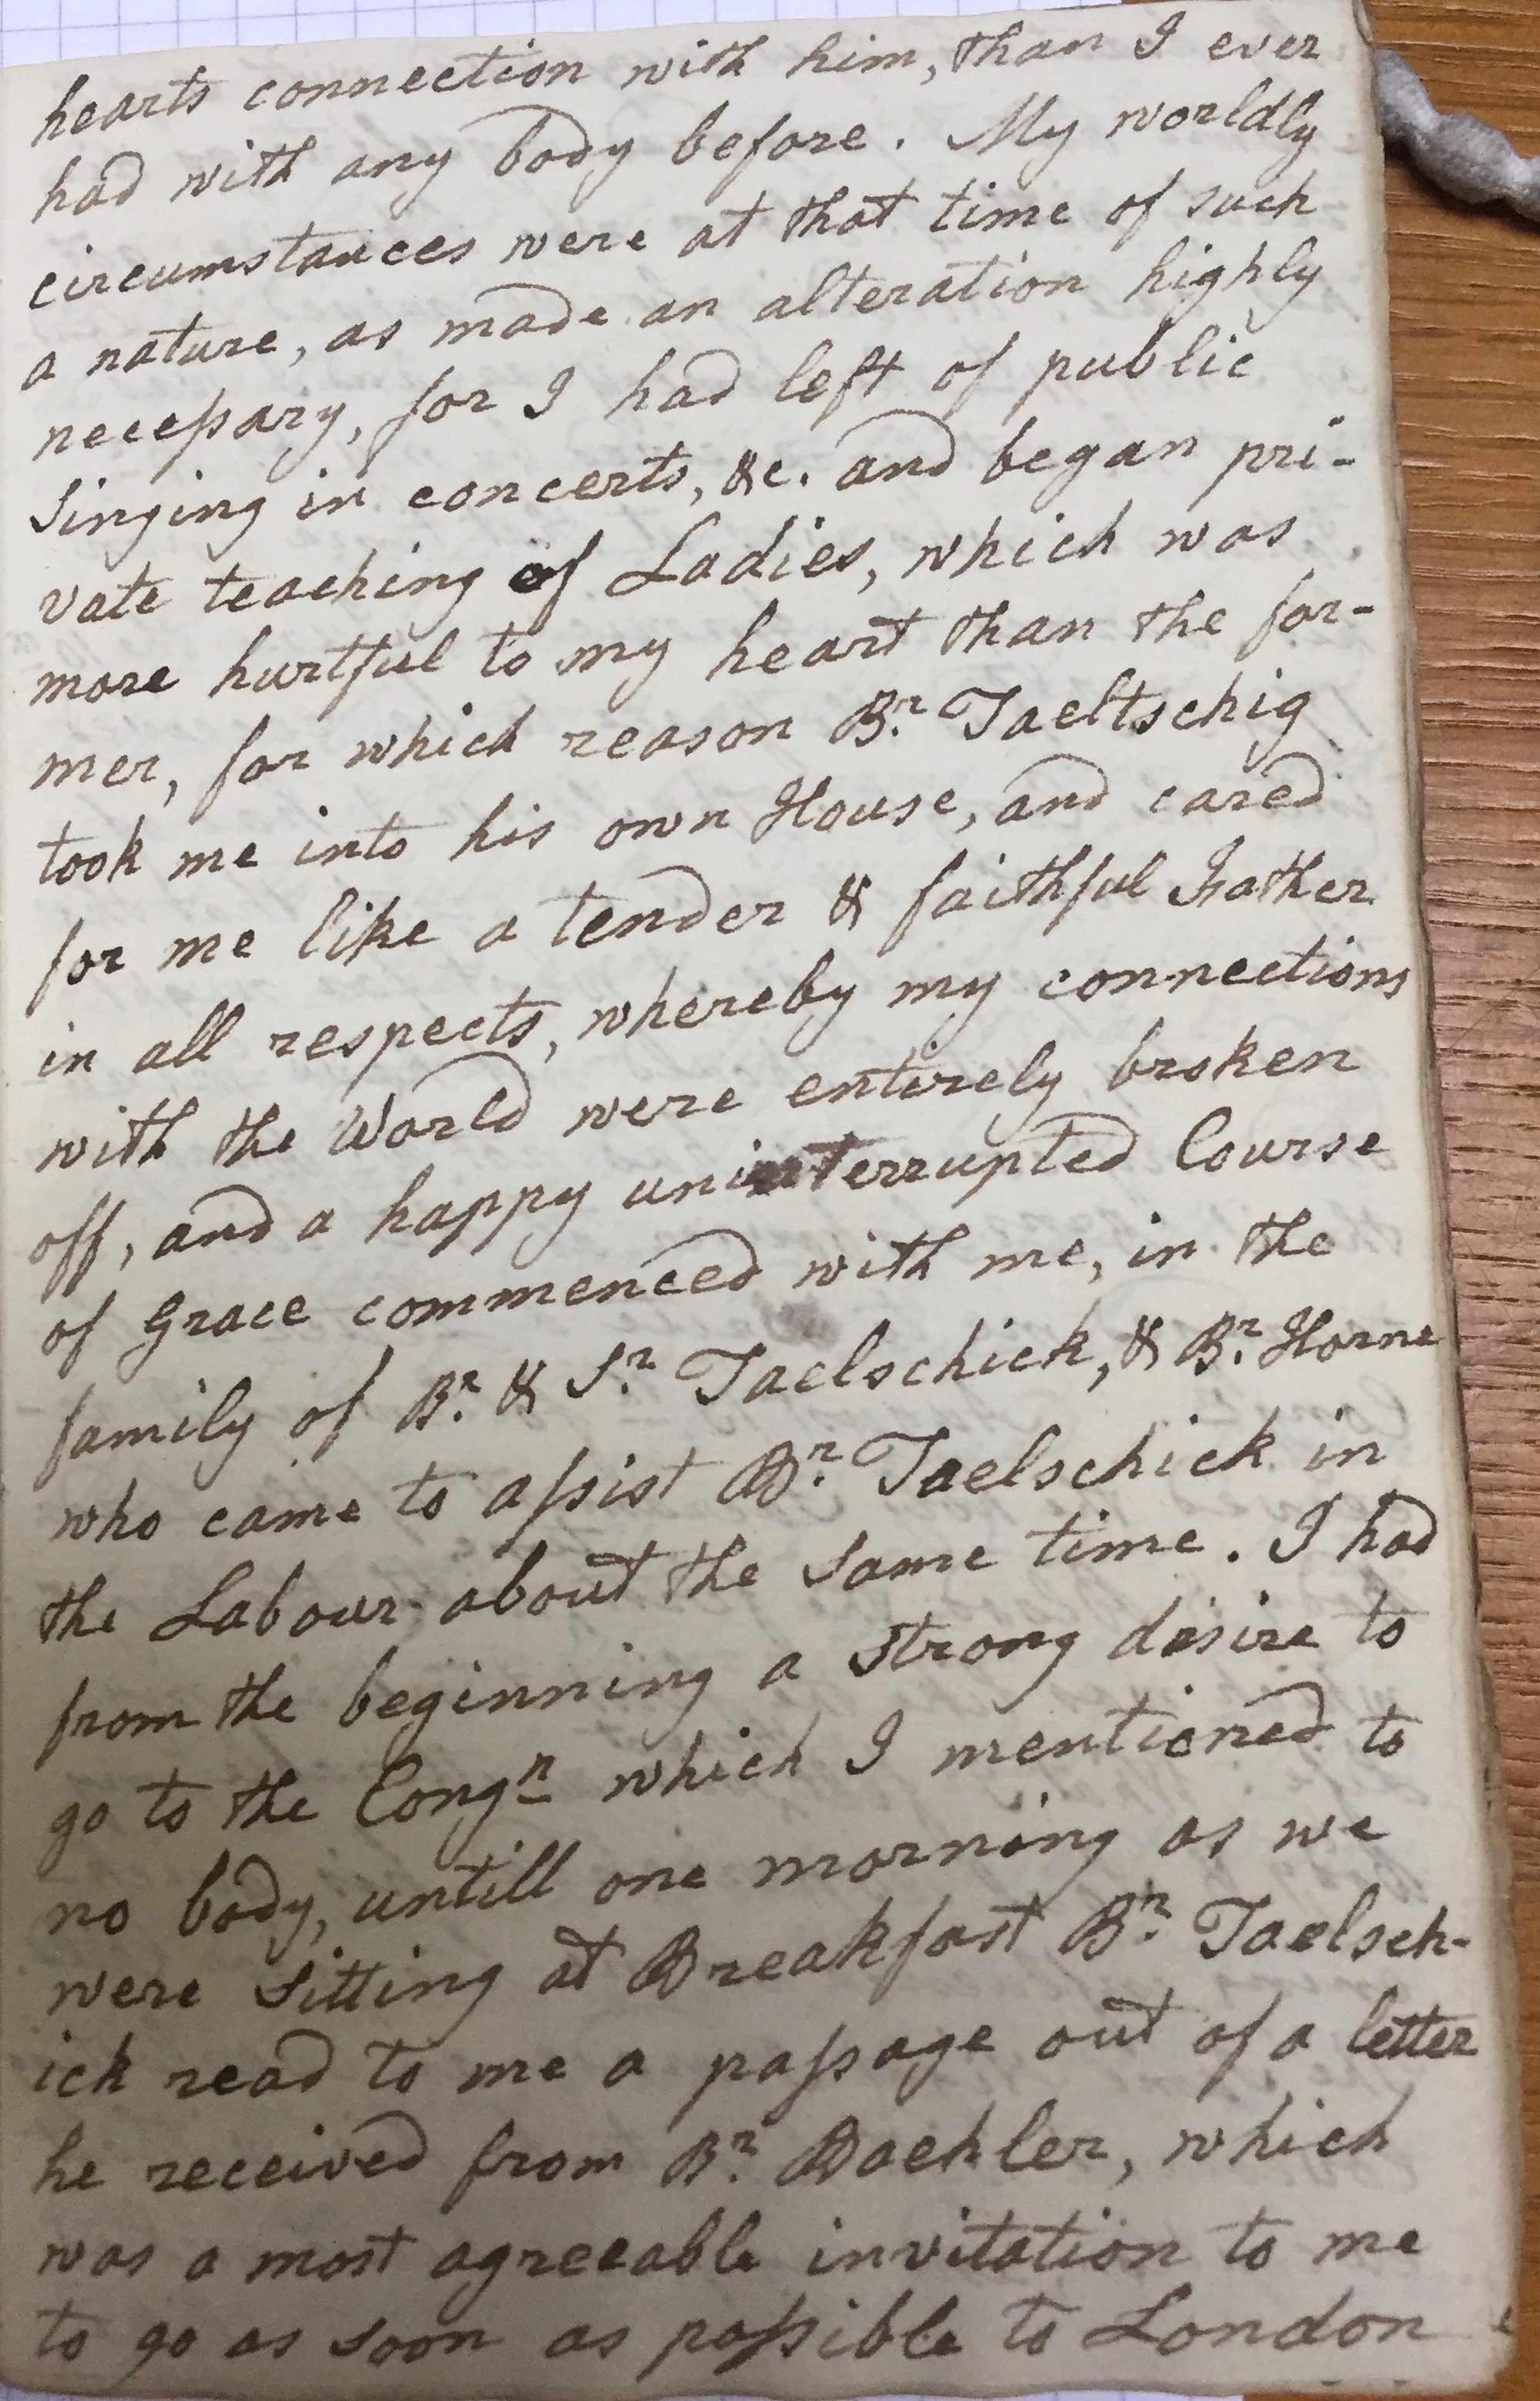 hearts connection with him, than I ever
had with any body before. My worldly
circumstances were at that time of such
a nature, as made an alteration highly
neceſsary, for I had left of public
Singing in concerts, &c. and began pri-
vate teaching of Ladies, which was
more hurtful to my heart than the for-
mer, for which reason Br. Taeltschig
took me into his own House, and cared
for me like a tender & faithful Father
in all respects, whereby my connections
with the World were entirely broken
off, and a happy uninterrupted Course
of Grace commenced with me, in the
family of Br. & Sr. Taelschick, & Br. Horne
who came to aſsist Br. Taelschick in
the Labour about the same time. I had
from the beginning a strong desire to
go to the Congn which I mentioned to
no body, untill one morning as we
were Sitting at Breakfast Br. Taelsch-
ick read to me a paſsage out of a letter
he received from Br. Boehler, which
was a most agreeable invitation to me
to go as soon as poſsible to London